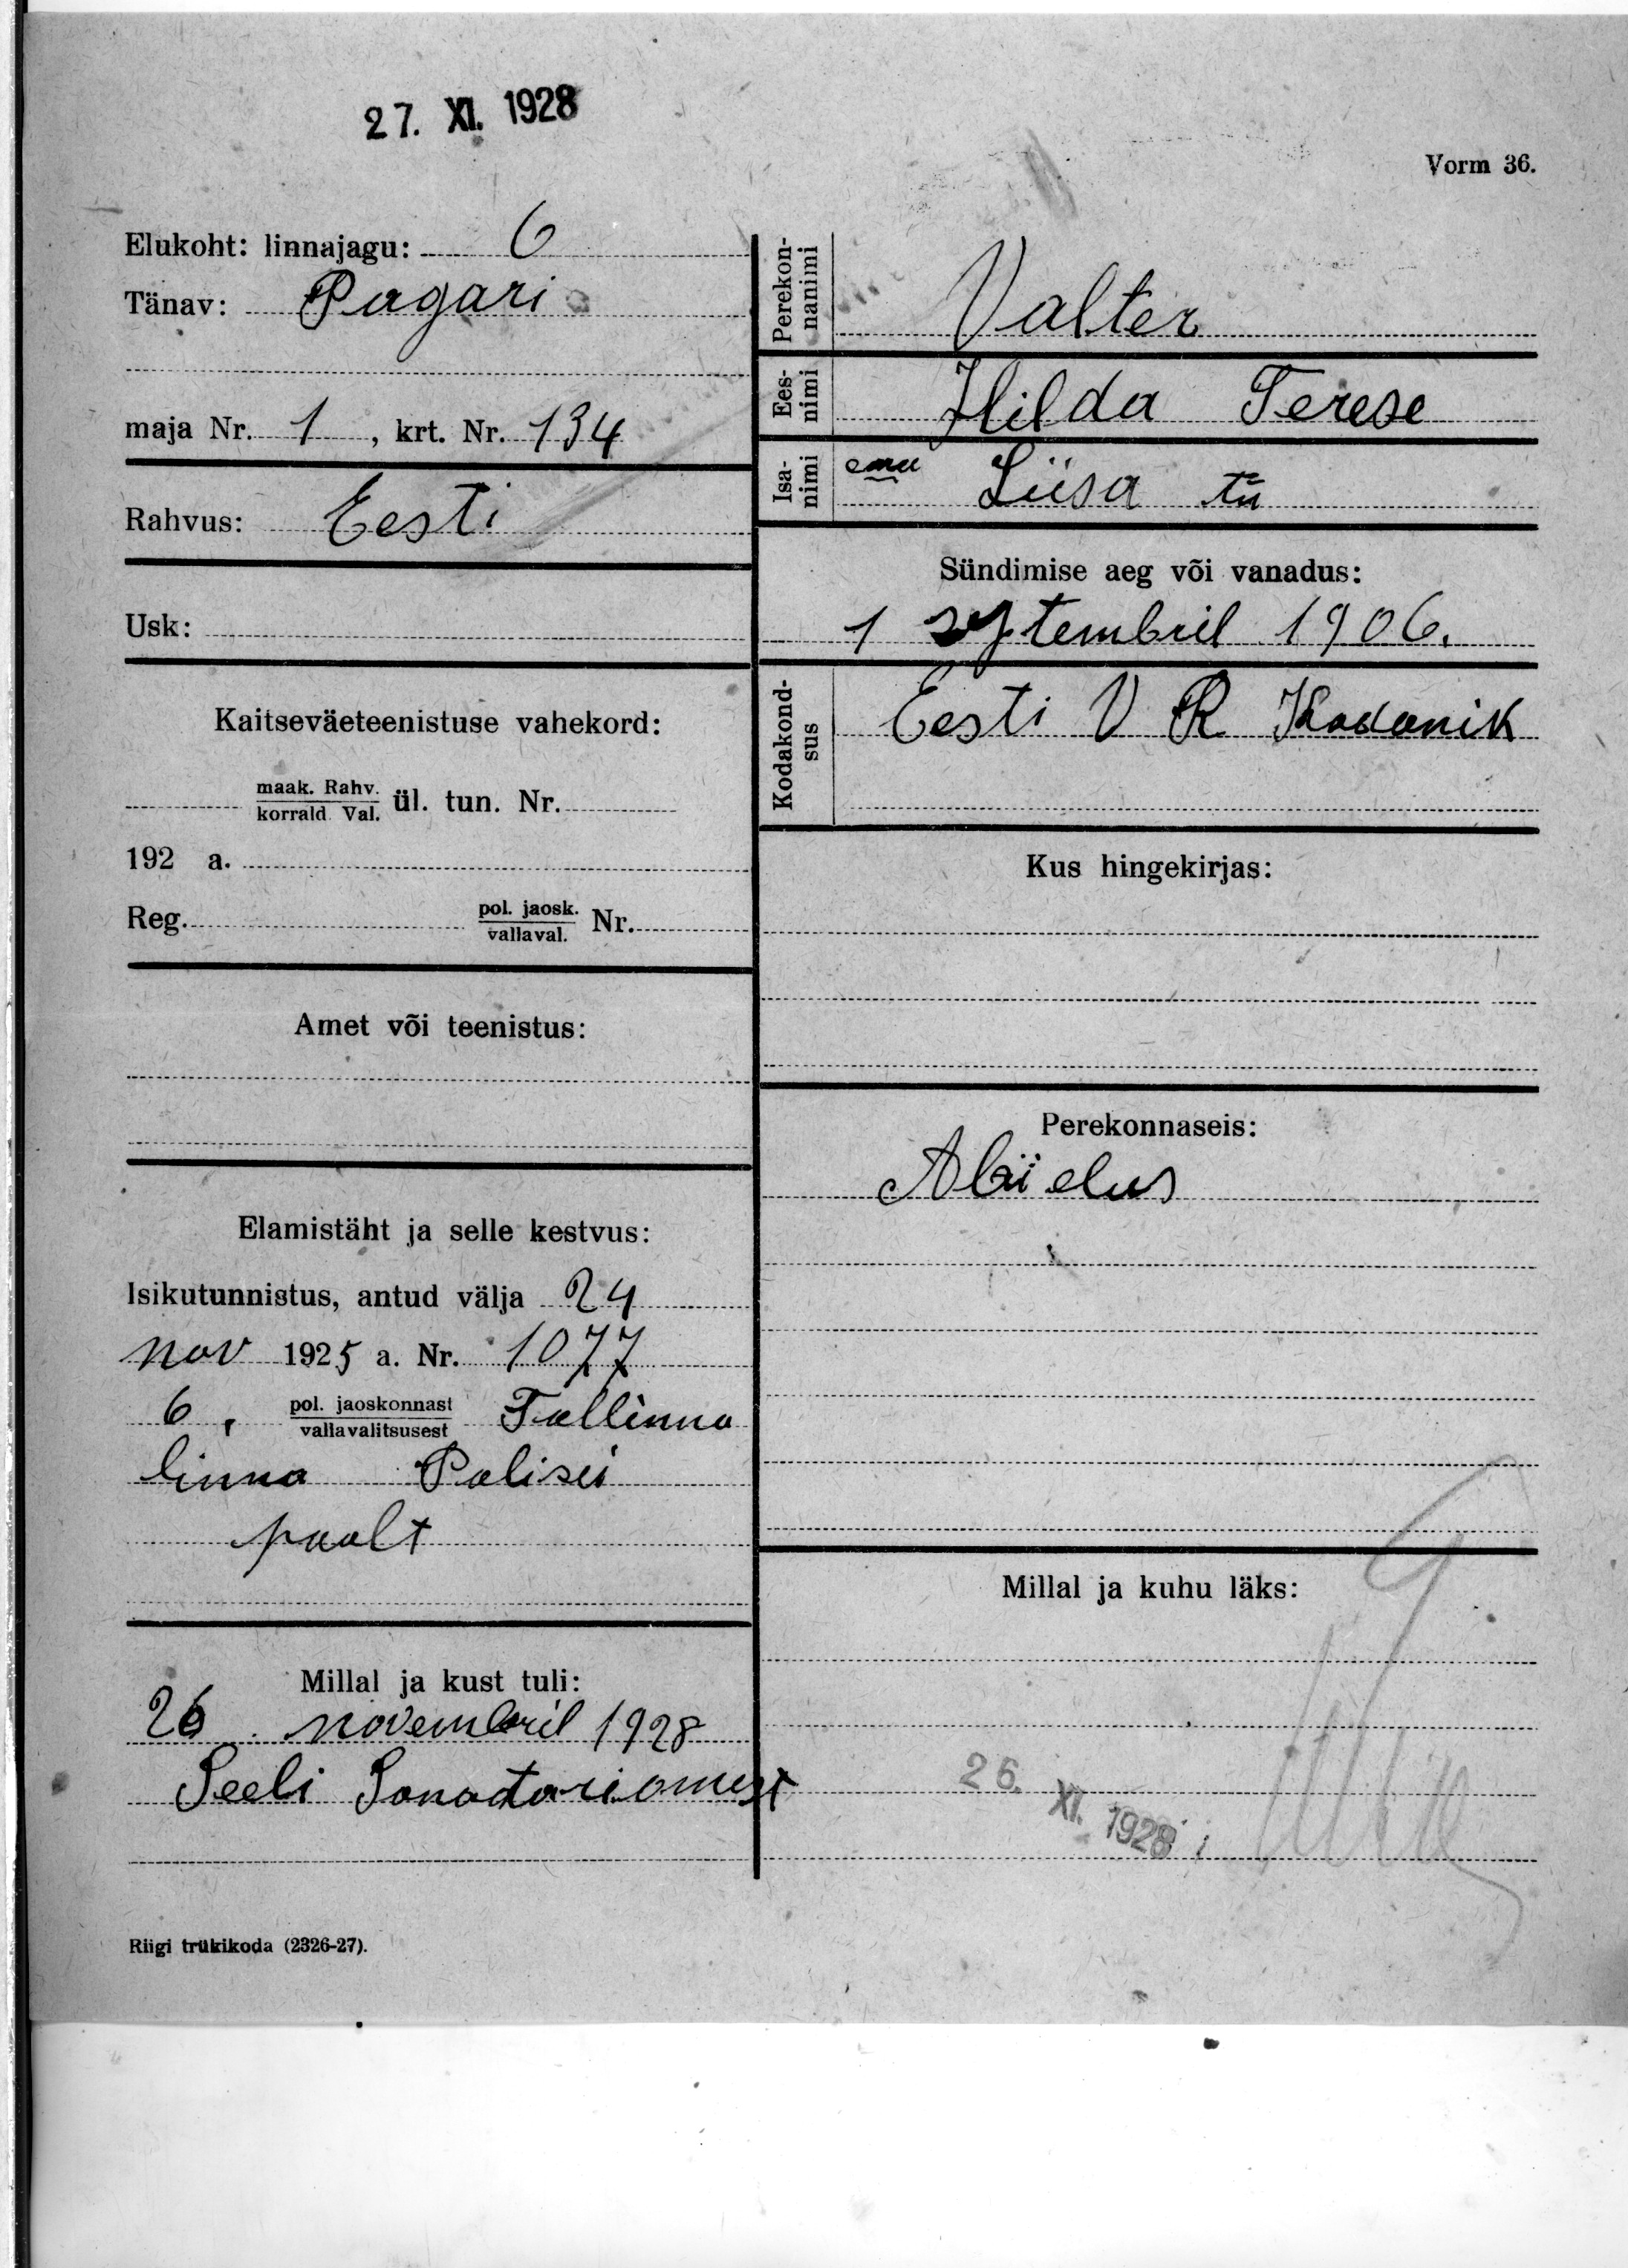 27. XI. 1928
Vorm 36.
Elukoht: linnajagu: 6
Tänav: Pagari
maja Nr. 1, krt. Nr. 134
Rahvus: Eesti
Usk:
Kaitseväeteenistuse vahekord:
maak. Rahv.
korrald Val. ül. tun. Nr.
192 a.
Reg. pol. jaosk.
vallaval. Nr.
Amet või teenistus:
Elamistäht ja selle kestvus:
Isikutunnistus, antud välja 24
nov 1925 a. Nr. 1077
6, pol. jaoskonnast
vallavalitsusest Tallinna
linna Polisei
poolt
Millal ja kust tuli:
26. novembril 1928
Seeli Sanatoriomest
Riigi trükikoda (2326-27).
Perekon-
nanimi
Valter
Ees-
nimi
Hilda Terese
Isa-
nimi
ema Liisa tü
Sündimise aeg või vanadus:
1 septembril 1906.
Kodakond-
sus
Eesti V R Kodanik
Kus hingekirjas:
Perekonnaseis:
Abiielus
Millal ja kuhu läks:
26. XI. 1928